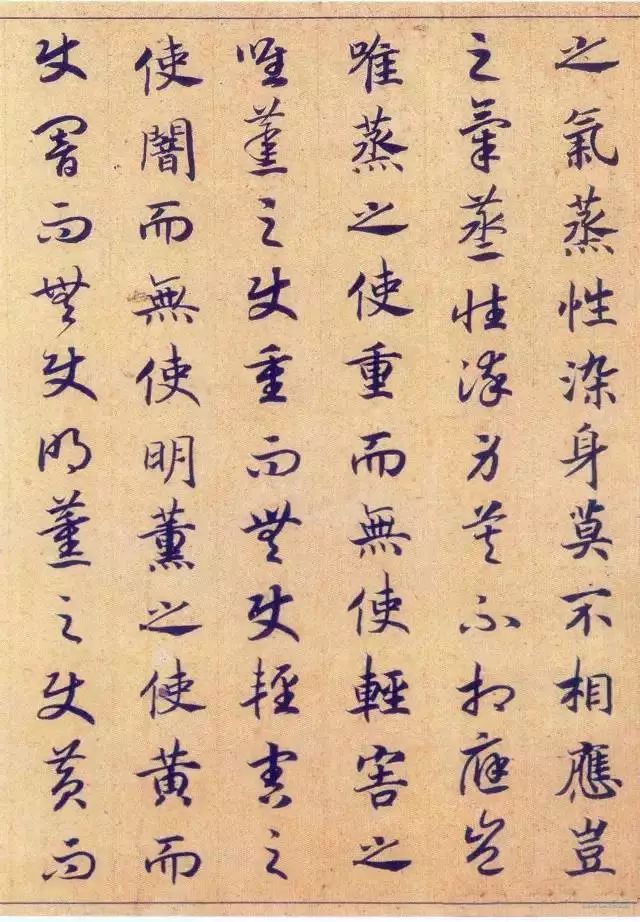 之氣蒸性染身莫不相應豈
之氣蒸性染身莫不相應豈
唯蒸之使重而無使輕害之
唯薰之使重而無使輕害之
使闇而無使明薰之使黃而
使闇而無使明薰之使黃而